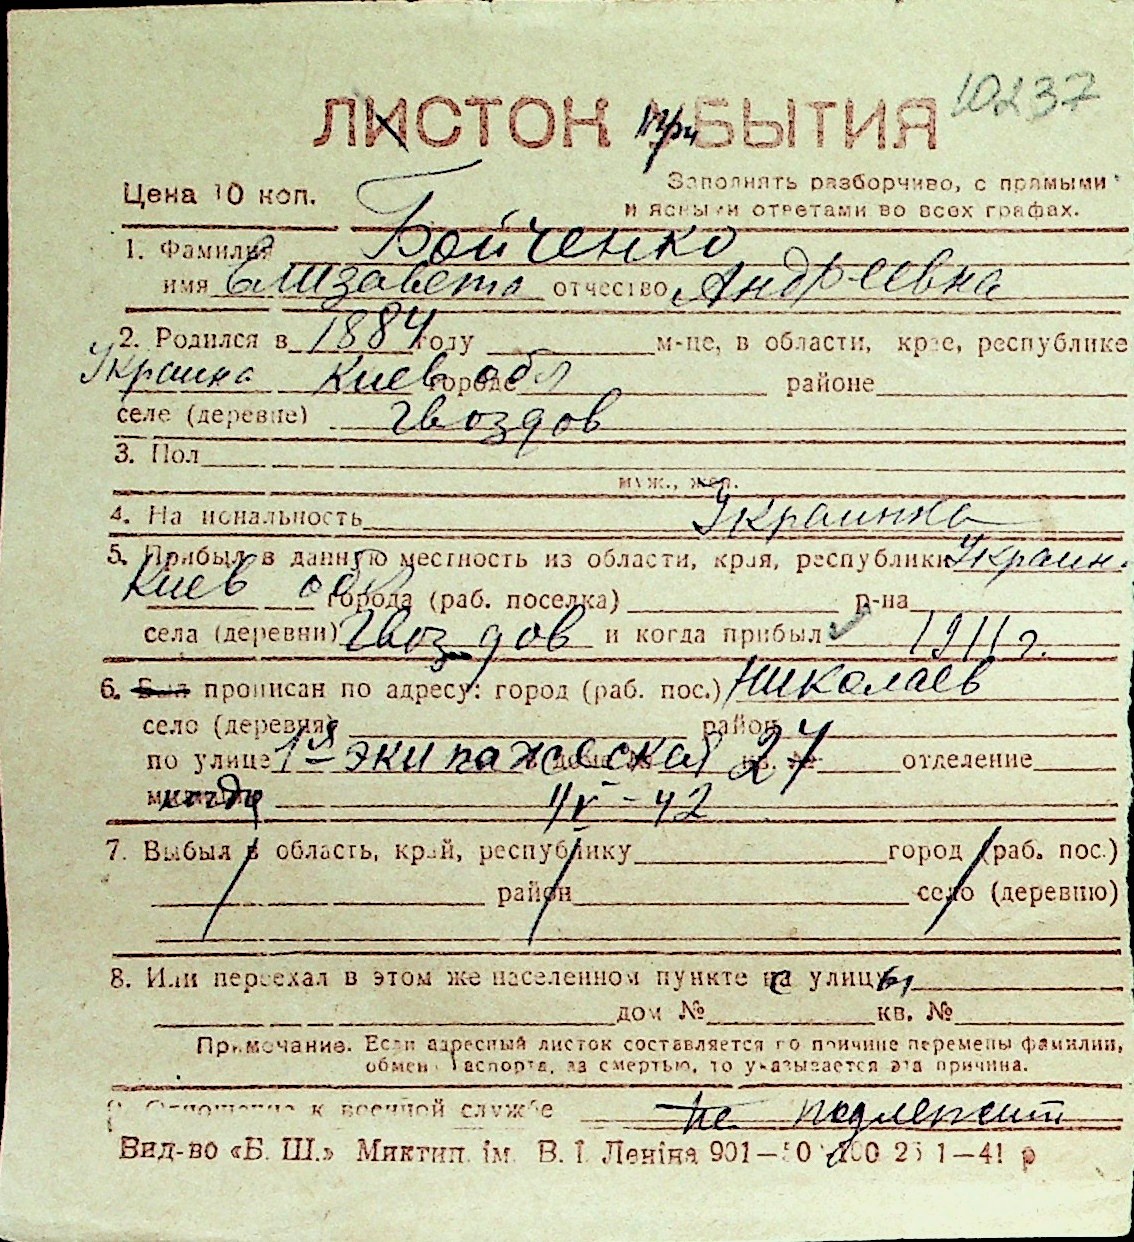 10237
ЛИСТОК При БЫТИЯ
Цена 10 коп.
Заполнять разборчиво, с прямыми
и ясными ответами во всех графах.
1. Фамилия Бойченко
имя Елизавета отчество Андреевна
2. Родился в 1884 году м-це, в области, крае, республике
Украина Киев обл городе районе
селе (деревне) Гвоздов
3. Пол
муж., жен.
4. Национальность Украинка
5. Прибыл в данную местность из области, края, республики Украин.
Киев обл города (раб. поселка) р-на
села (деревни) Гвоздов и когда прибыл 1911 г.
6. Был прописан по адресу: город (раб. пос.) Николаев
село (деревня) район
по улице 1я экипажеская 27 кв. № отделение
когда 1/V - 42
7. Выбыл в область, край, республику город (раб. пос.)
район село (деревню)
8. Или переехал в этом же населенном пункте с улицы
дом № кв. №
Примечание. Если адресный листок составляется по причине перемены фамилии,
обмена паспорта, за смертью, то указывается эта причина.
9. Отношение к военной службе не подлежит
Вид-во «Б. Ш.» Миктип. ім. В. І. Леніна 901— 25 1—41 р